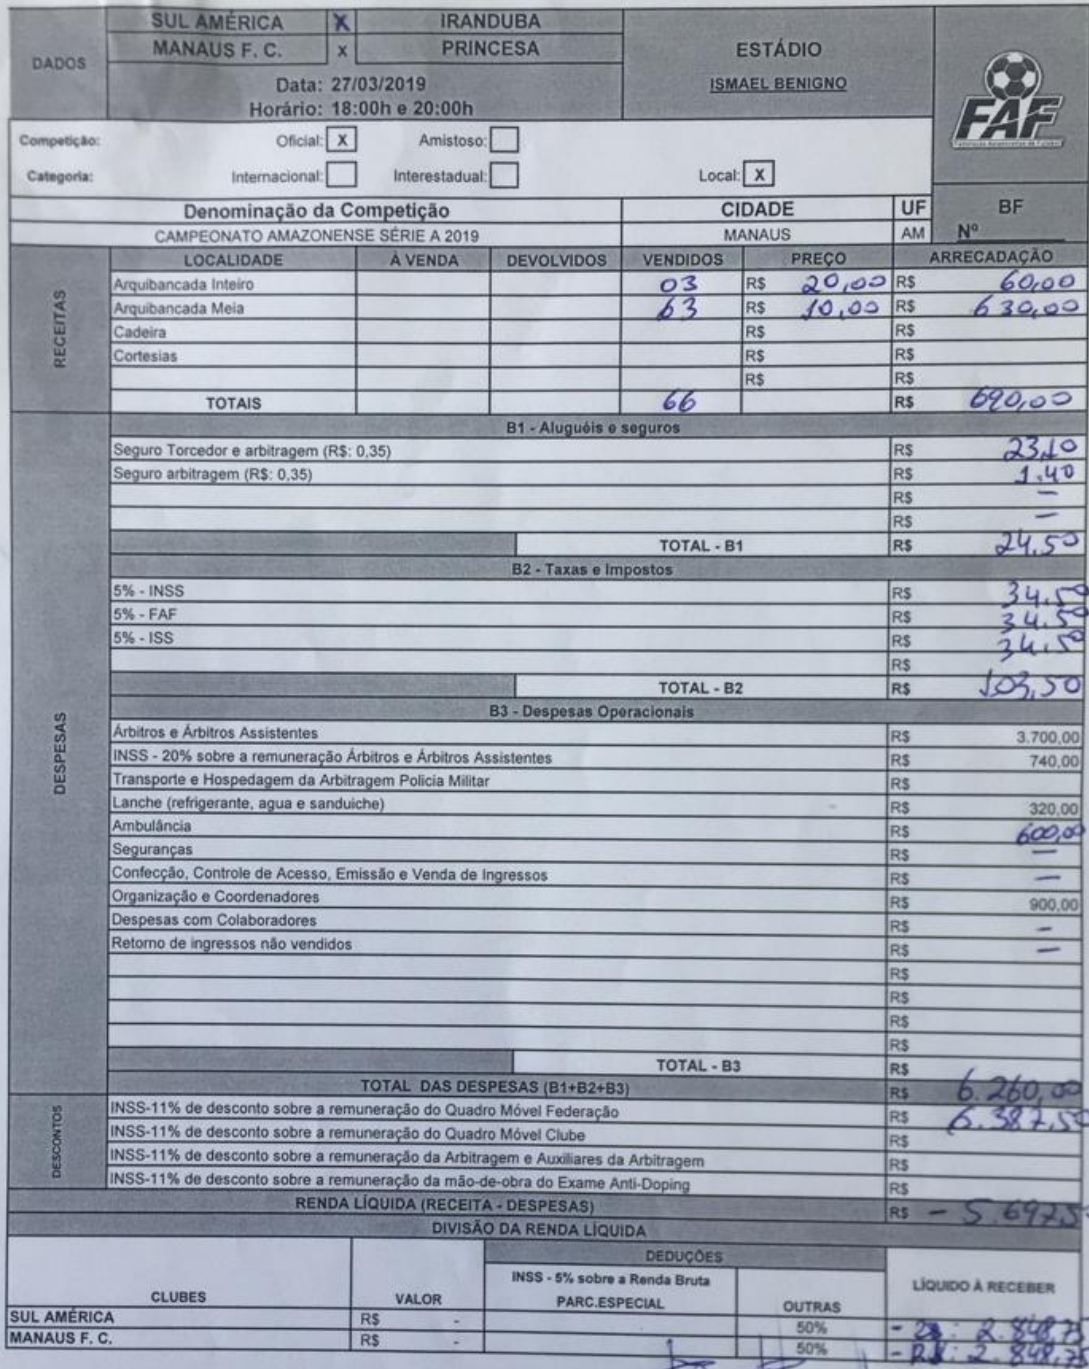 DADOS
SUL AMÉRICA X IRANDUBA
MANAUS F. C. x PRINCESA
Data: 27/03/2019
Horário: 18:00h e 20:00h
ESTÁDIO
ISMAEL BENIGNO
FAF
Competição: Oficial: X Amistoso:
Categoria: Internacional: Interestadual: Local: X
Denominação da Competição CIDADE UF BF
CAMPEONATO AMAZONENSE SÉRIE A 2019 MANAUS AM Nº
RECEITAS
LOCALIDADE À VENDA DEVOLVIDOS VENDIDOS PREÇO ARRECADAÇÃO
Arquibancada Inteiro 03 R$ 20,00 R$ 60,00
Arquibancada Meia 63 R$ 10,00 R$ 630,00
Cadeira R$ R$
Cortesias R$ R$
R$ R$
TOTAIS 66 R$ 690,00
DESPESAS
B1 - Aluguéis e seguros
Seguro Torcedor e arbitragem (R$: 0,35) R$ 23,10
Seguro arbitragem (R$: 0,35) R$ 1.40
R$ —
R$ —
TOTAL - B1 R$ 24.50
B2 - Taxas e Impostos
5% - INSS R$ 34.50
5% - FAF R$ 34.50
5% - ISS R$ 34.50
R$
TOTAL - B2 R$ 103,50
B3 - Despesas Operacionais
Árbitros e Árbitros Assistentes R$ 3.700,00
INSS - 20% sobre a remuneração Árbitros e Árbitros Assistentes R$ 740,00
Transporte e Hospedagem da Arbitragem Policia Militar R$
Lanche (refrigerante, agua e sanduiche) R$ 320,00
Ambulância R$ 600,00
Seguranças R$ —
Confecção, Controle de Acesso, Emissão e Venda de Ingressos R$ —
Organização e Coordenadores R$ 900,00
Despesas com Colaboradores R$ -
Retorno de ingressos não vendidos R$ —
R$
R$
R$
R$
TOTAL - B3 R$
TOTAL DAS DESPESAS (B1+B2+B3) R$ 6.260,00
DESCONTOS
INSS-11% de desconto sobre a remuneração do Quadro Móvel Federação R$ 6.387,50
INSS-11% de desconto sobre a remuneração do Quadro Móvel Clube R$
INSS-11% de desconto sobre a remuneração da Arbitragem e Auxiliares da Arbitragem R$
INSS-11% de desconto sobre a remuneração da mão-de-obra do Exame Anti-Doping R$
RENDA LÍQUIDA (RECEITA - DESPESAS) R$ - 5.697,5
DIVISÃO DA RENDA LÍQUIDA
DEDUÇÕES
CLUBES VALOR INSS - 5% sobre a Renda Bruta PARC.ESPECIAL OUTRAS LÍQUIDO À RECEBER
SUL AMÉRICA R$ - 50% 2.848,75
MANAUS F. C. R$ - 50% 2.848,75